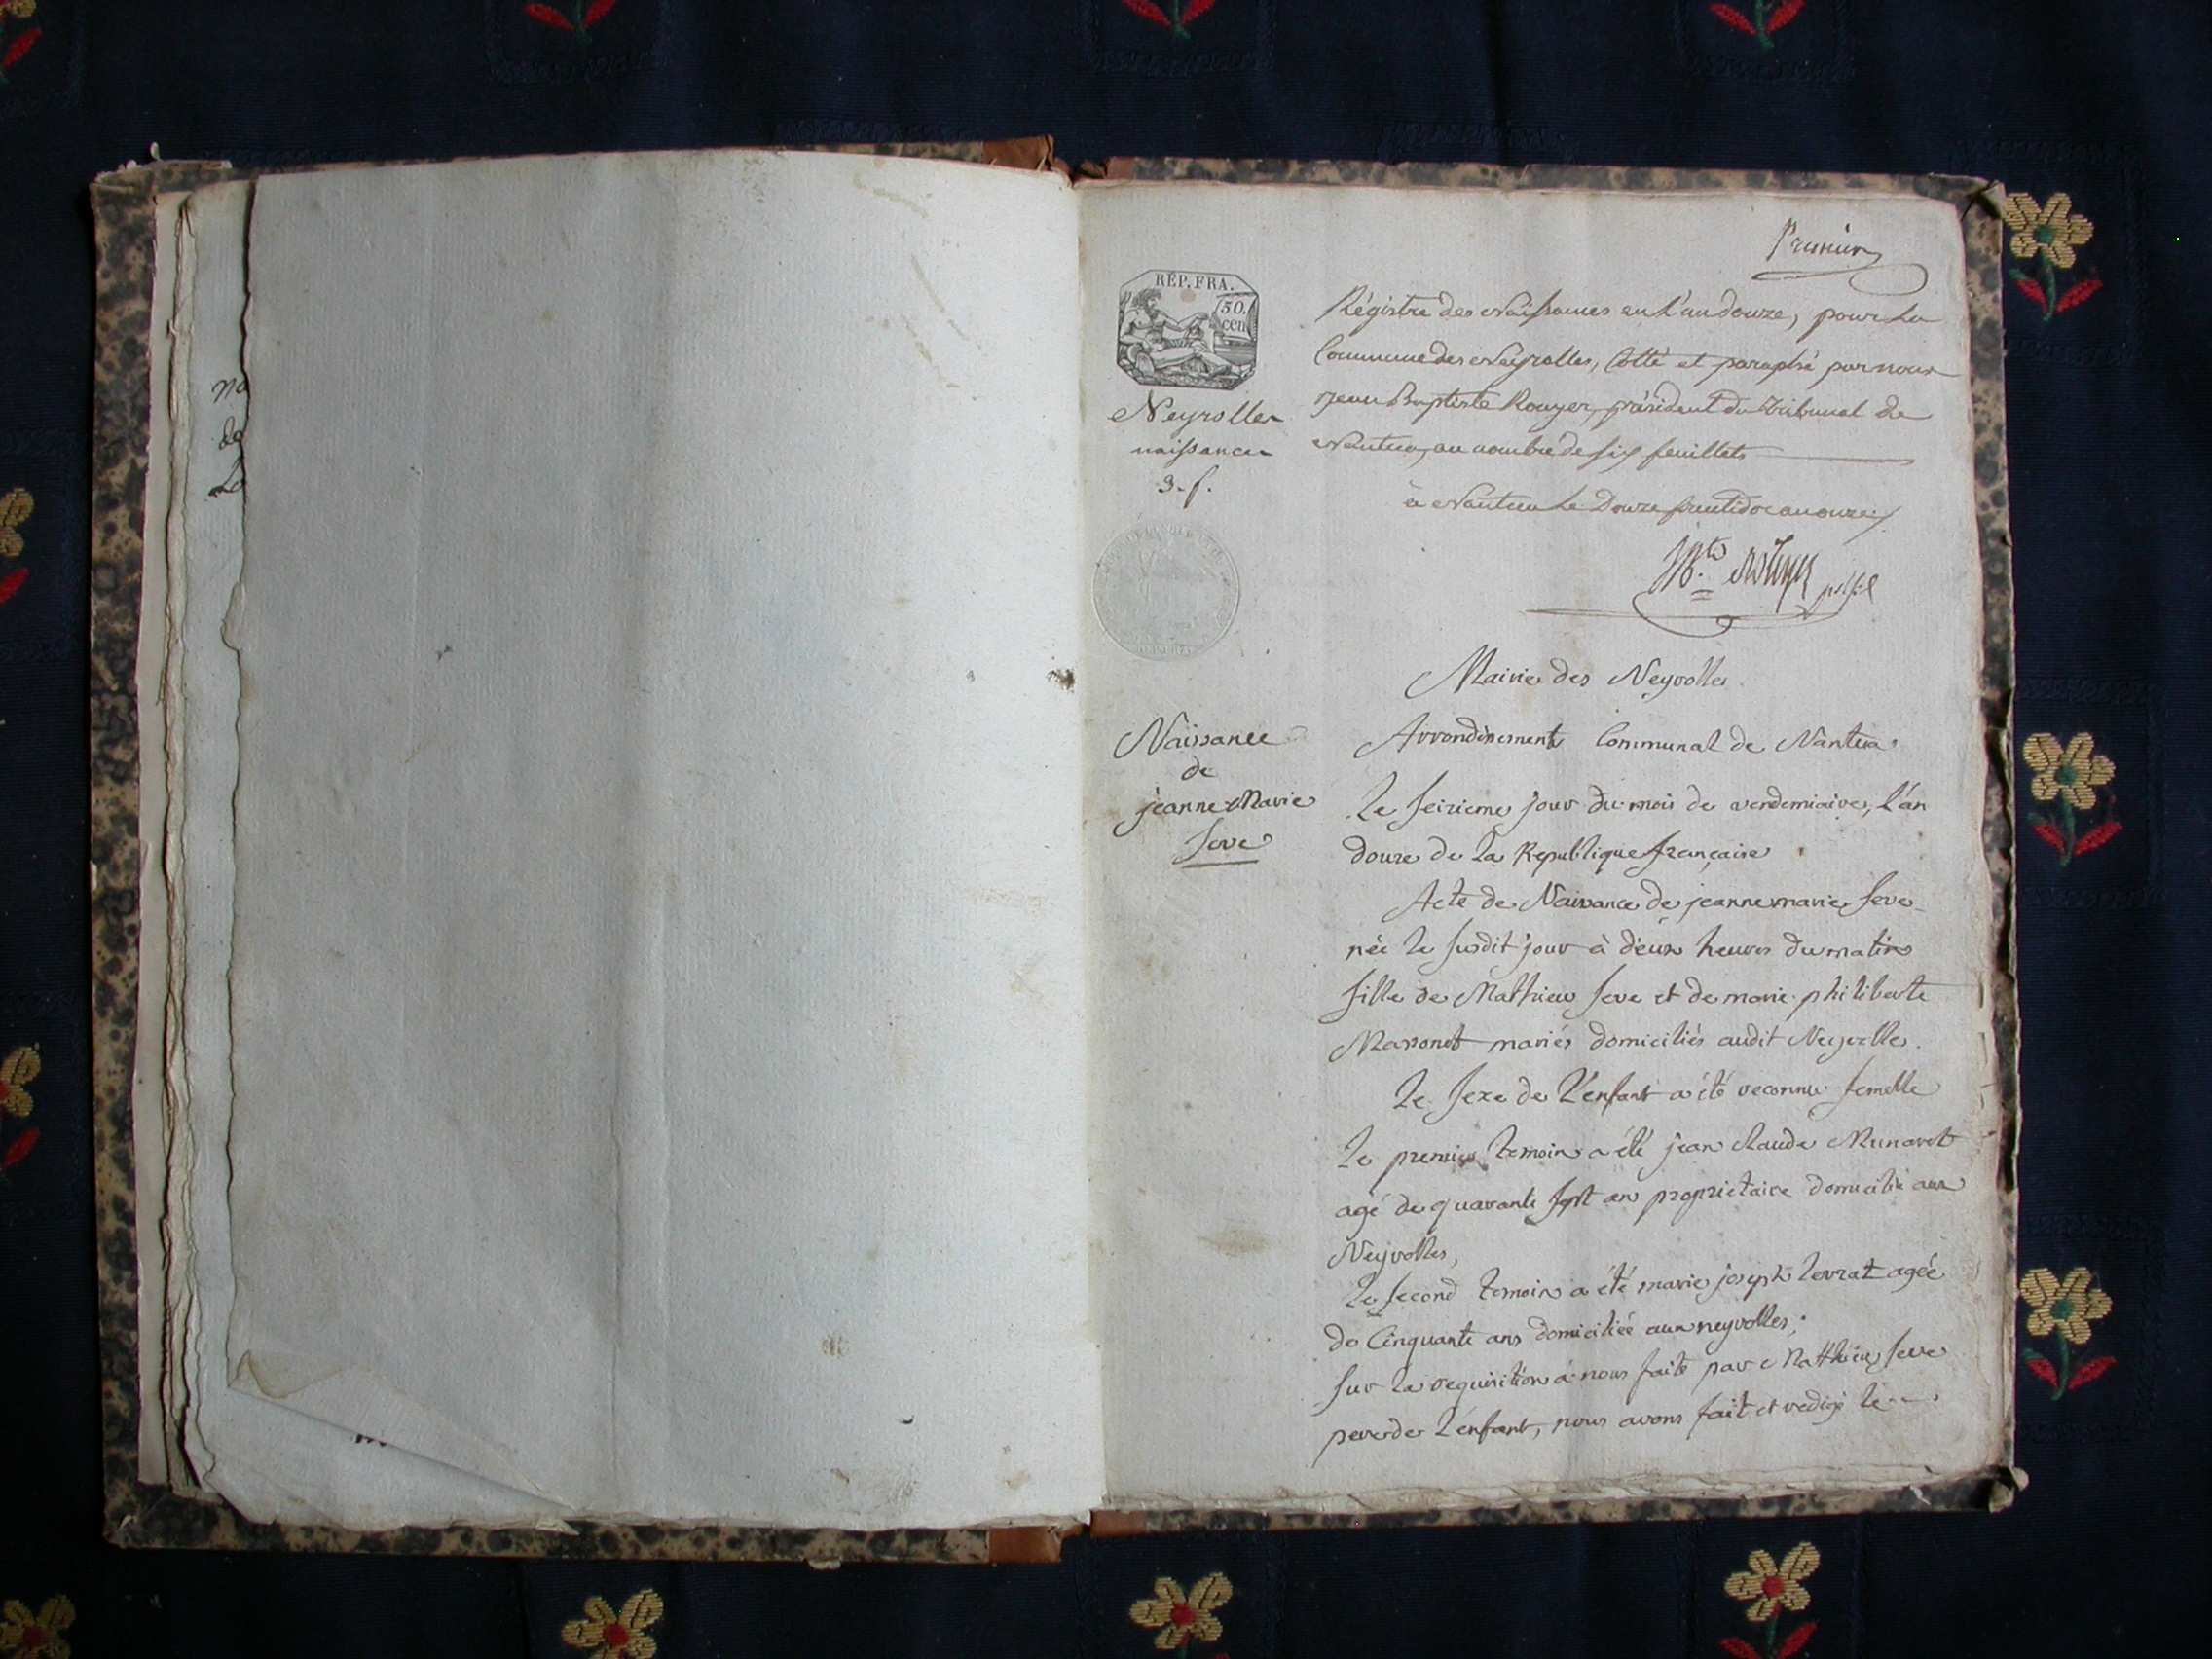 na
de
Premier
RÉP. FRA.
50.
cen
Neyrolles
naissances
3. f.
Régistre des Naissances en L'an douze, pour La
Commune des Neyrolles, Cotté et paraphé par nous
Jean Baptiste Rouyer, président du Tribunal de
Nantua, au nombre de six feuillets
à Nantua Le Douze fructidor an onze
Mairie des Neyrolles
Naissance
de
jeanne Marie
Seve
Arrondissement Communal de Nantua
Le Seizieme jour du mois de vendemiaire, l'an
douze de la Republique française
Acte de Naissance de jeanne marie Seve
née le susdit jour à deux heures du matin
fille de Mathieu Seve et de marie philiberte
Massonet mariés domiciliés audit Neyrolles.
Le Sexe de l'enfant a été reconnu femelle
Le premier temoin a été jean claude Munaret
agé de quarante sept ans proprietaire domicilié aux
Neyrolles,
Le second temoin a été marie joseph levrat agée
de Cinquante ans domiciliée aux neyrolles;
Sur la requisition à nous faite par Matthieu Seve
pere de l'enfant, nous avons fait et redigé le